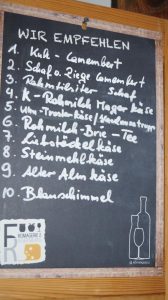 WIR EMPFEHLEN
1. Kuh - Camembert
2. Schaf o. Ziege Camembert
3. Rohmilchtilsiter Schaf
4. K - Rohmilch Mager Käse
5. Ur-Tiroler Käse /
6. Rohmilch - Brie - Tee
7. Liebstöckelkäse
8. Steinmehlkäse
9. Alter Almkäse
10. Blauschimmel
FROMAGERIE
FR